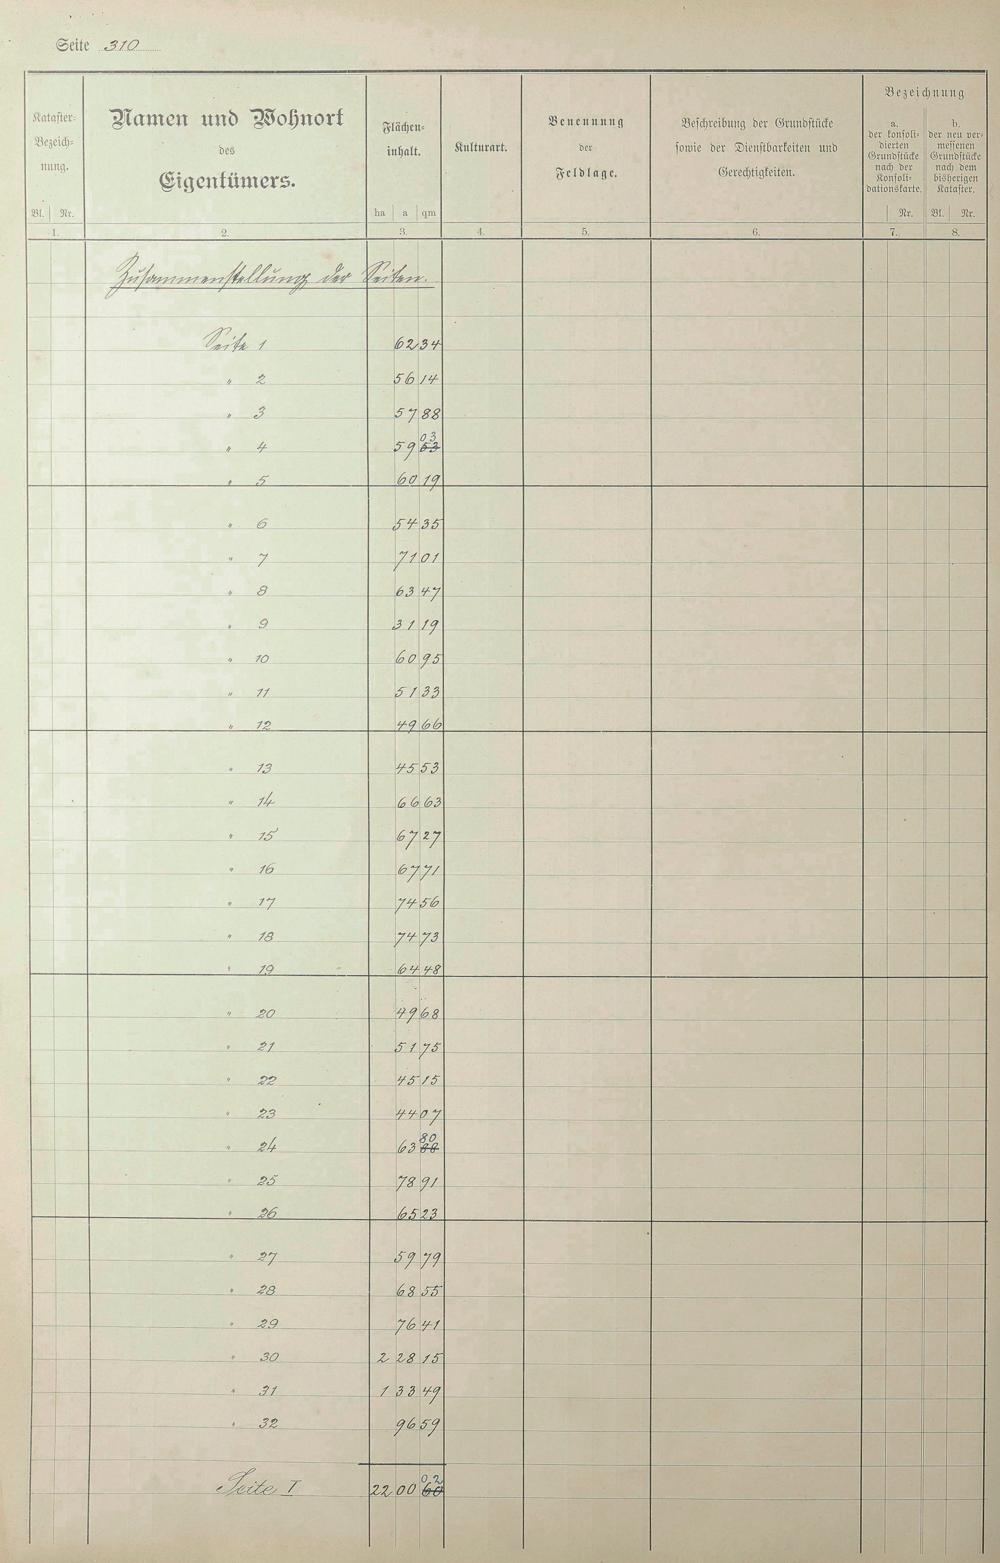 Seite 310
Kataster-
Bezeich-
nung.
Bl. Nr.
Namen und Wohnort
des
Eigentümers.
Flächen-
inhalt.
ha a qm
Kulturart.
Benennung
der
Feldlage.
Beschreibung der Grundstücke
sowie der Dienstbarkeiten und
Gerechtigkeiten.
Bezeichnung
a.
der konsoli-
dierten
Grundstücke
nach der
Konsoli-
dationskarte.
Nr.
b.
der neu ver-
messenen
Grundstücke
nach dem
bisherigen
Kataster.
Bl. Nr.
1. 2. 3. 4. 5. 6. 7. 8.
Zusammenstellung der Seiten.
Seite 1 62 34
" 2 56 14
" 3 57 88
" 4 59 53 03
" 5 60 19
" 6 54 35
" 7 71 01
" 8 63 47
" 9 31 19
" 10 60 95
" 11 51 33
" 12 49 66
" 13 45 53
" 14 66 63
" 15 67 27
" 16 67 71
" 17 74 56
" 18 74 73
" 19 64 48
" 20 49 68
" 21 51 75
" 22 45 15
" 23 44 07
" 24 63 88 80
" 25 78 91
" 26 65 23
" 27 59 79
" 28 68 55
" 29 76 41
" 30 2 28 15
" 31 1 33 49
" 32 96 59
Seite I 22 00 60 02